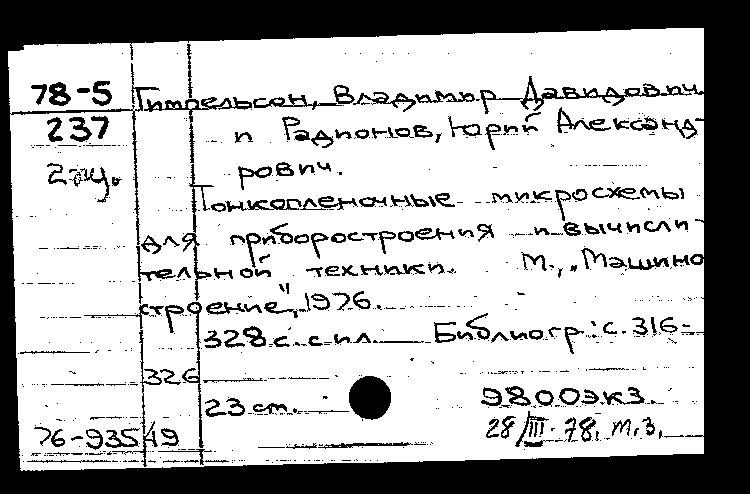 78-5 Гимпельсон, Владимир Давидович
237 и Радионов, Юрий Александ-
2 рович.
Тонкопленочные микросхемы
для приборостроения и вычисли-
тельной техники. М., „Машино
строение", 1976.
328 с. с ил. Библиогр.: с. 316-
326
23 см. 9800 экз.
76-93549 28/III-78. т.з.